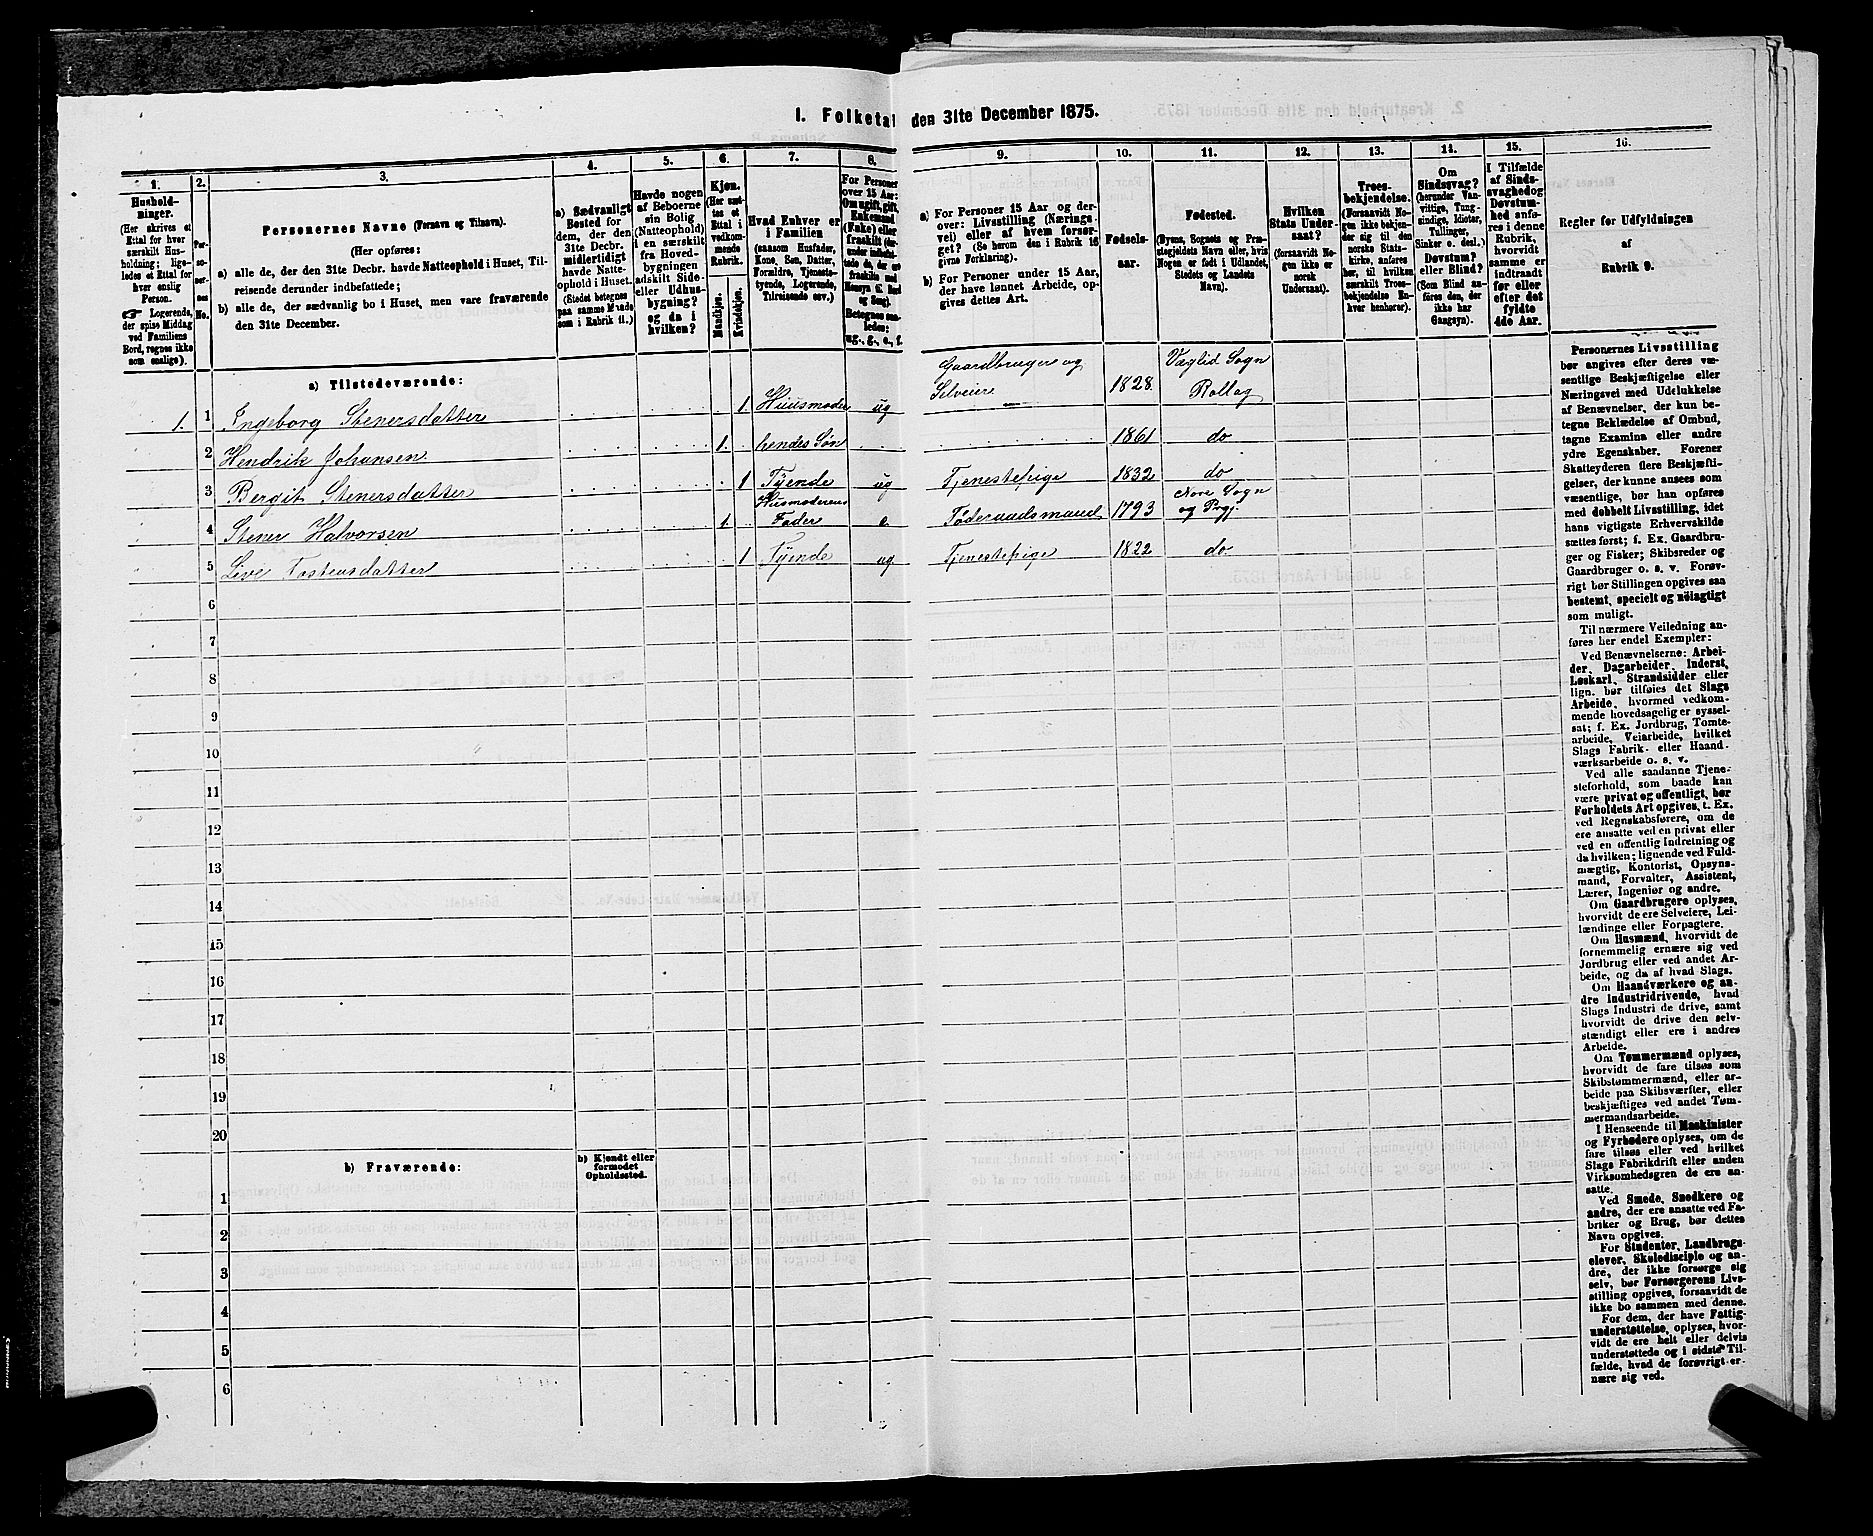 I. Folketal den 31te December 1875.
1. 2. 3. 4. 5. 6. 7. 8. 9. 10. 11. 12. 13. 14. 15. 16.
Hushold-
ninger.
(Her skrives et
Ettal for hver
særskilt Hus-
holdning; lige-
ledes et Ettal for
hver enslig
Person.
☞ Logerende,
der spise Middag
ved Familiens
Bord, regnes ikke
som enslige).
Per-
so-
ner-
nes
No.
Personernes Navne (Fornavn og Tilnavn).
(Her opføres:
a) alle de, der den 31te Decbr. havde Natteophold i Huset, Til-
reisende derunder indbefattede;
b) alle de, der sædvanlig bo i Huset, men vare fraværende
den 31te December.
a) Sædvanligt
Bosted for
dem, der den
31te Decbr.
midlertidigt
havde Natte-
ophold i Huset.
(Stedet betegnes
paa samme Maade
som i Rubrik 11.)
Havde nogen
af Beboerne
sin Bolig
(Natteophold)
i en særskilt
fra Hoved-
bygningen
adskilt Side-
eller Udhus-
bygning?
og da i
hvilken?
Kjøn.
(Her sæt-
tes et
Ettal i
vedkom-
mende
Rubrik.
Mandkjøn.
Kvindekjøn.
Hvad Enhver er
i Familien
(saasom Husfader,
Kone, Søn, Datter,
Forældre, Tjeneste-
tyende, Logerende,
Tilreisende osv.)
For Personer
over 15 Aar:
Om ugift, gift,
Enkemand
(Enke) eller
fraskilt
Betegnes saa-
ledes:
ug., g., e., f.
a) For Personer 15 Aar og der-
over: Livsstilling (Nærings-
vei) eller af hvem forsør-
get? (Se herom den i Rubrik 16
givne Forklaring).
b) For Personer under 15 Aar,
der have lønnet Arbeide, op-
gives dettes Art.
Fødsels-
aar.
Fødested.
(Byens, Sognets og Præ-
stegjeldets Navn eller, hvis
Nogen er født i Udlandet,
Stedets og Landets
Navn).
Hvilken
Stats Under-
saat?
(forsaavidt No-
gen ikke er
norsk
Undersaat).
Troes-
bekjendelse.
(Forsaavidt No-
gen ikke bekjen-
der sig til den
norske Stats-
kirke, anføres
her, til hvilken
særskilt Troes-
bekjendelse En-
hver henhører).
Om
Sindssvag?
(herunder Van-
vittige, Tung-
sindige, Idioter,
Tullinger,
Sinker o. desl.)
Døvstum?
eller Blind?
(Som Blind an-
føres den, der
ikke har
Gangsyn).
I Tilfælde
af Sinds-
svaghed og
Døvstum-
hed anfø-
res i denne
Rubrik,
hvorvidt
samme er
indtraadt
før eller
efter det
fyldte
4de Aar.
Regler for Udfyldningen
af
Rubrik 9.
a) Tilstedeværende:
1. 1 Ingeborg Stenersdatter 1 Huusmoder ug Gaardbruger og Selveier 1828 Væglid Sogn Rollag
2 Hendrik Johansen 1. hendes Søn 1861 do
3 Bergit Stenersdatter 1 Tyende ug Tjenestepige 1832 do
4 Stener Halvorsen 1. Husmoderens Fader e. Føderaadsmand 1793 Nore Sogn og Prgj.
5 Live Tostensdatter 1 Tyende ug Tjenestepige 1822 do
6
7
8
9
10
11
12
13
14
15
16
17
18
19
20
b) Fraværende:
b) Kjendt eller
formodet
Opholdssted.
1
2
3
4
5
6
Personernes Livsstilling
bør angives efter deres væ-
sentlige Beskjæftigelse eller
Næringsvei med Udelukkelse
af Benævnelser, der kun be-
tegne Beklædelse af Ombud,
tagne Examina eller andre
ydre Egenskaber. Forener
Skatteyderen flere Beskjæfti-
gelser, der kunne ansees som
væsentlige, bør han opføres
med dobbelt Livsstilling, idet
hans vigtigste Erhvervskilde
sættes først; f. Ex. Gaardbru-
ger og Fisker; Skibsreder og
Gaardbruger o. s. v. Forøv-
rigt bør Stillingen opgives saa
bestemt, specielt og nøiagtigt
som muligt.
Til nærmere Veiledning an-
føres her endel Exempler:
Ved Benævnelserne: Arbei-
der, Dagarbeider, Inderst,
Løskarl, Strandsidder eller
lign. bør tilføies det Slags
Arbeide, hvormed vedkom-
mende hovedsagelig er syssel-
sat; f. Ex. Jordbrug, Tomte-
arbeide, Veiarbeide, hvilket
Slags Fabrik- eller Haand-
værksarbeide o. s. v.
Ved alle saadanne Tjene-
steforhold, som baade kan
være privat og offentligt, bør
Forholdets Art opgives, t. Ex.
ved Regnskabsførere, om de
ere ansatte ved en privat eller
ved en offentlig Indretning og
da hvilken; lignende ved Fuld-
mægtig, Kontorist, Opsyns-
mand, Forvalter, Assistent,
Lærer, Ingeniør og andre.
Om Gaardbrugere oplyses,
hvorvidt de ere Selveiere, Lei-
lændinge eller Forpagtere.
Om Husmænd, hvorvidt de
fornemmelig ernære sig ved
Jordbrug eller ved andet Ar-
beide, og da af hvad Slags.
Om Haandværkere og an-
dre Industridrivende, hvad
Slags Industri de drive, samt
hvorvidt de drive den selv-
stændigt eller ere i andres
Arbeide.
Om Tømmermænd oplyses,
hvorvidt de fare tilsøs som
Skibstømmermænd, eller ar-
beide paa Skibsværfter, eller
beskjæftiges ved andet Tøm-
mermandsarbeide.
I Henseende til Maskinister
og Fyrbødere oplyses, om de
fare tilsøs eller ved hvilket
Slags Fabrikdrift eller anden
Virksomhedsgren de ere an-
satte.
Ved Smede, Snedkere og
andre, der ere ansatte ved Fa-
briker og Brug, bør dettes
Navn opgives.
For Studenter, Landbrugs-
elever, Skoledisciple og an-
dre, der ikke forsørge sig
selv, bør Forsørgerens Livs-
stilling opgives, forsaavidt de
ikke bo sammen med denne.
For dem, der have Fattig-
understøttelse, oplyses, hvor-
vidt de ere helt eller delvis
understøttede og i sidste Til-
fælde, hvad de forøvrigt er-
nære sig ved.